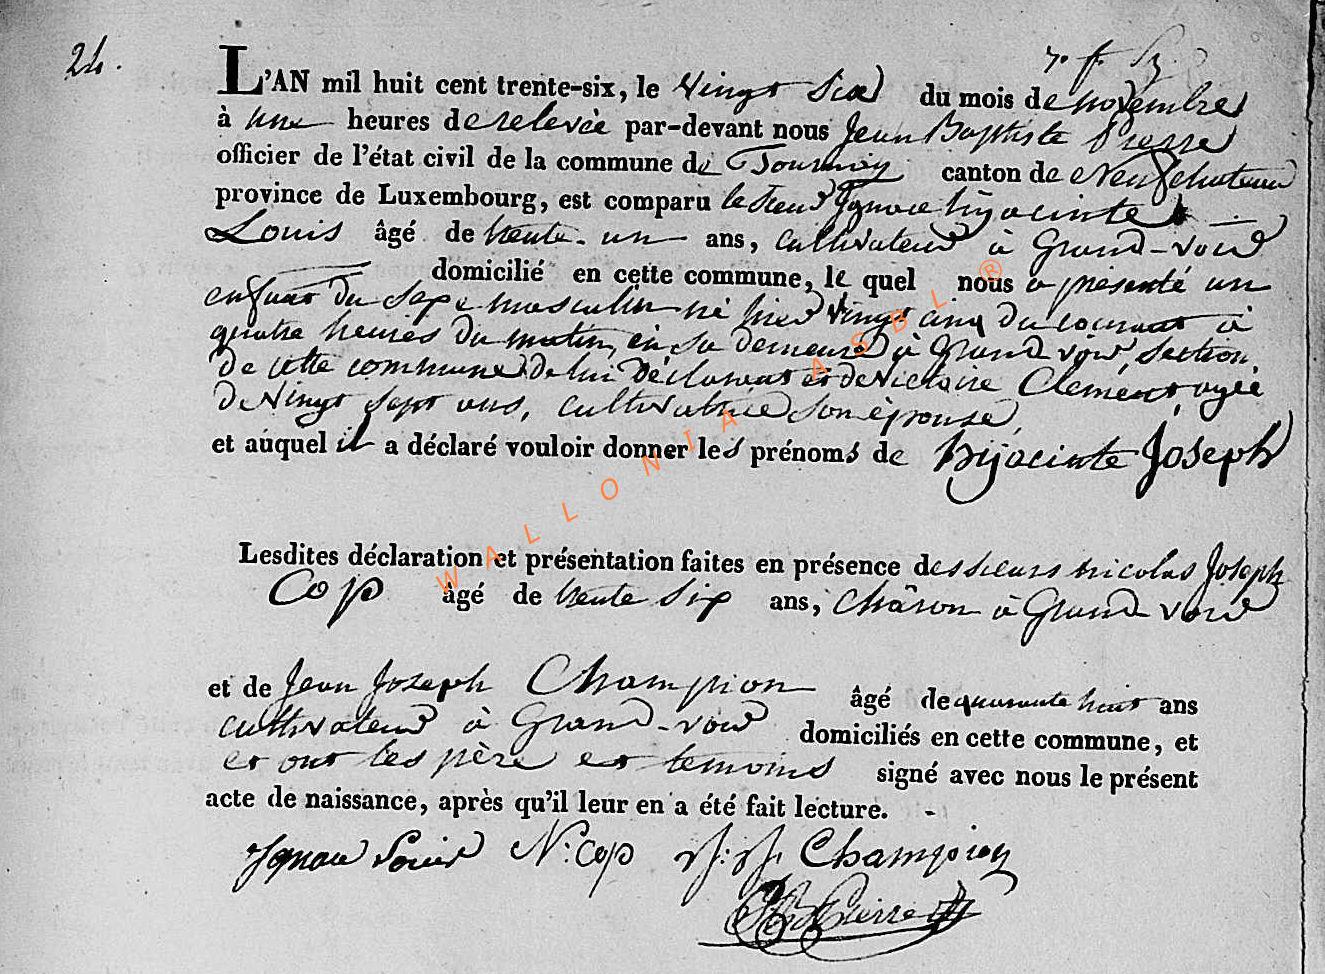 24.
L'AN mil huit cent trente-six, le Vingt Six du mois de novembre
à une heures de relevée par-devant nous Jean Baptiste Pierre
officier de l'état civil de la commune de Tournay canton de Neufchateau
province de Luxembourg, est comparu le sieur Ignace hyacinte
Louis âgé de trente-un ans, cultivateur à Grand-voir
domicilié en cette commune, le quel nous a présenté un
enfant du sexe masculin né hier Vingt cinq du courant à
quatre heures du matin, en sa demeure à Grand voir, section
de cette commune de lui déclarant et de Victoire Clement agée
de Vingt sept ans, cultivatrice son épouse,
et auquel il a déclaré vouloir donner les prénoms de Hijacinte Joseph
Lesdites déclaration et présentation faites en présence des sieurs nicolas Joseph
Cop âgé de trente six ans, charon à Grand voir
et de Jean Joseph Champion âgé de quarante huit ans
cultivateur à Grand-voir domiciliés en cette commune, et
et ont les père et temoins signé avec nous le présent
acte de naissance, après qu'il leur en a été fait lecture. -
Ignace Louis N: Cop J: J. Champion
Pierre
WALLONIA ASBL ®